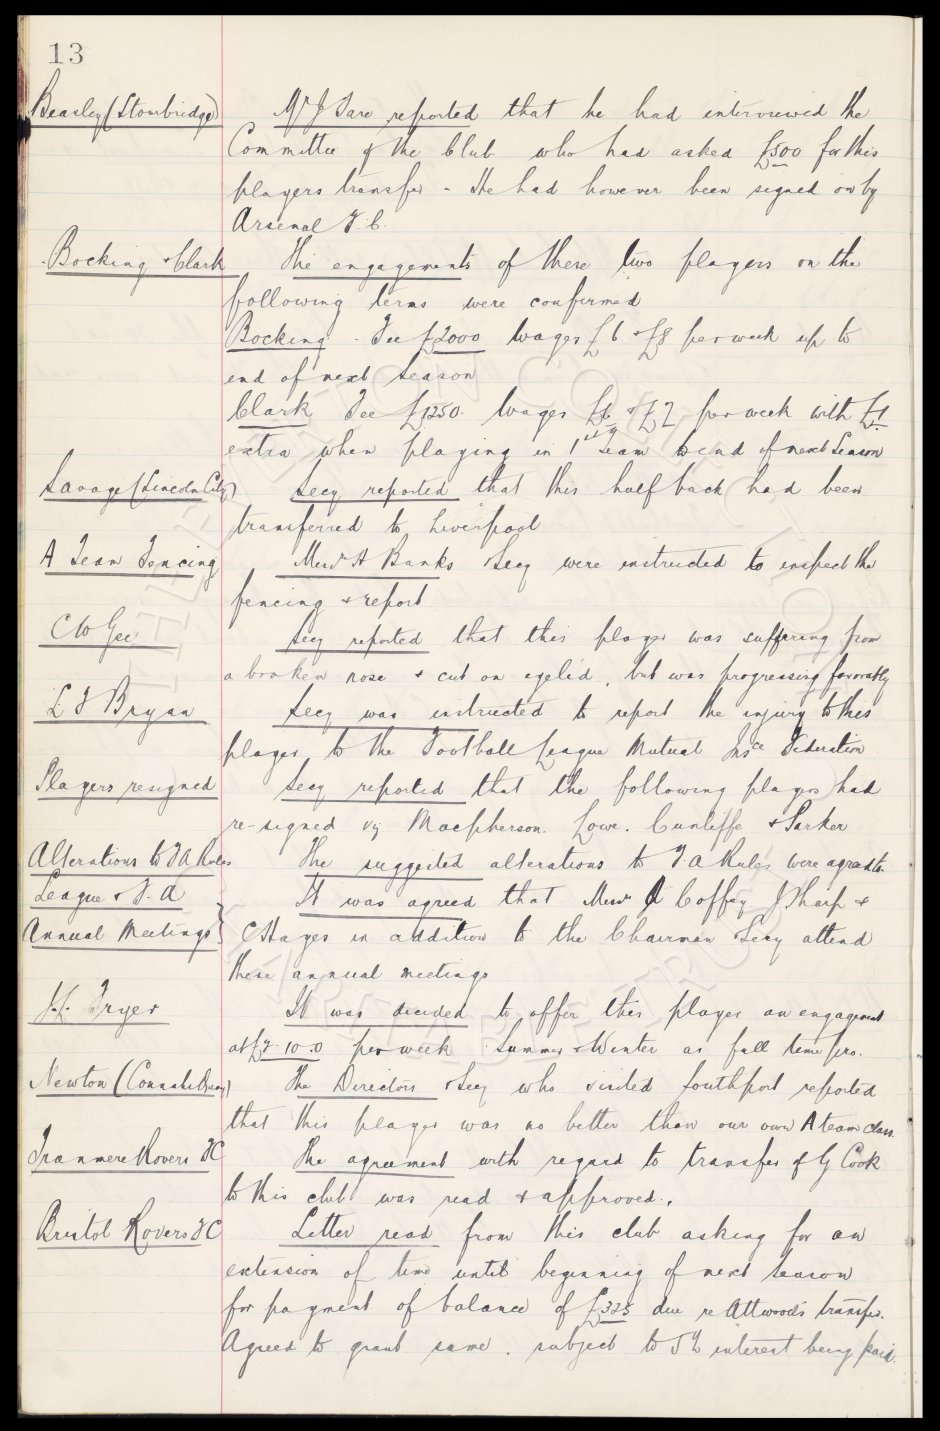 13
Beasley (Stourbridge) Mr J Sare reported that he had interviewed the
Committee of the Club who had asked £500 for this
players transfer - He had however been signed on by
Arsenal F.C.
Bocking & Clark The engagements of these two players on the
following terms were confirmed
Bocking. Fee £2000 Wages £6 & £8 per week up to
end of next season
Clark Fee £1250. Wages £6 & £7 per week with £1
extra when playing in 1st team to end of next Season
Savage (Lincoln City) Secy reported that this half back had been
transferred to Liverpool
A Team Fencing Messrs A Banks & Secy were instructed to inspect the
fencing & report
C W Gee Secy reported that this player was suffering from
a broken nose & cut on eyelid, but was progressing favorably
L F Bryan Secy was instructed to report the injury to this
player to the Football League Mutual Insce Federation
Players resigned Secy reported that the following players had
re-signed viz Macpherson. Lowe. Cunliffe & Parker
Alterations to F A Rules The suggested alterations to F.A Rules were agreed to.
League & F.A It was agreed that Messrs Coffey J Sharp &
Annual Meetings C Hayes in addition to the Chairman & Secy attend
these annual meetings
J.L. Fryer It was decided to offer this player an engagement
at £3-10-0 per week Summer & Winter as full time pro.
Newton (Connahs Quay) The Directors & Secy who visited Southport reported
that this player was no better than our own A team class.
Tranmere Rovers FC The agreement with regard to transfer of G Cook
to this club was read & approved.
Bristol Rovers FC Letter read from this club asking for an
extension of time until beginning of next season
for payment of balance of £325 due re Attwood's transfer.
Agreed to grant same. subject to 5% interest being paid.